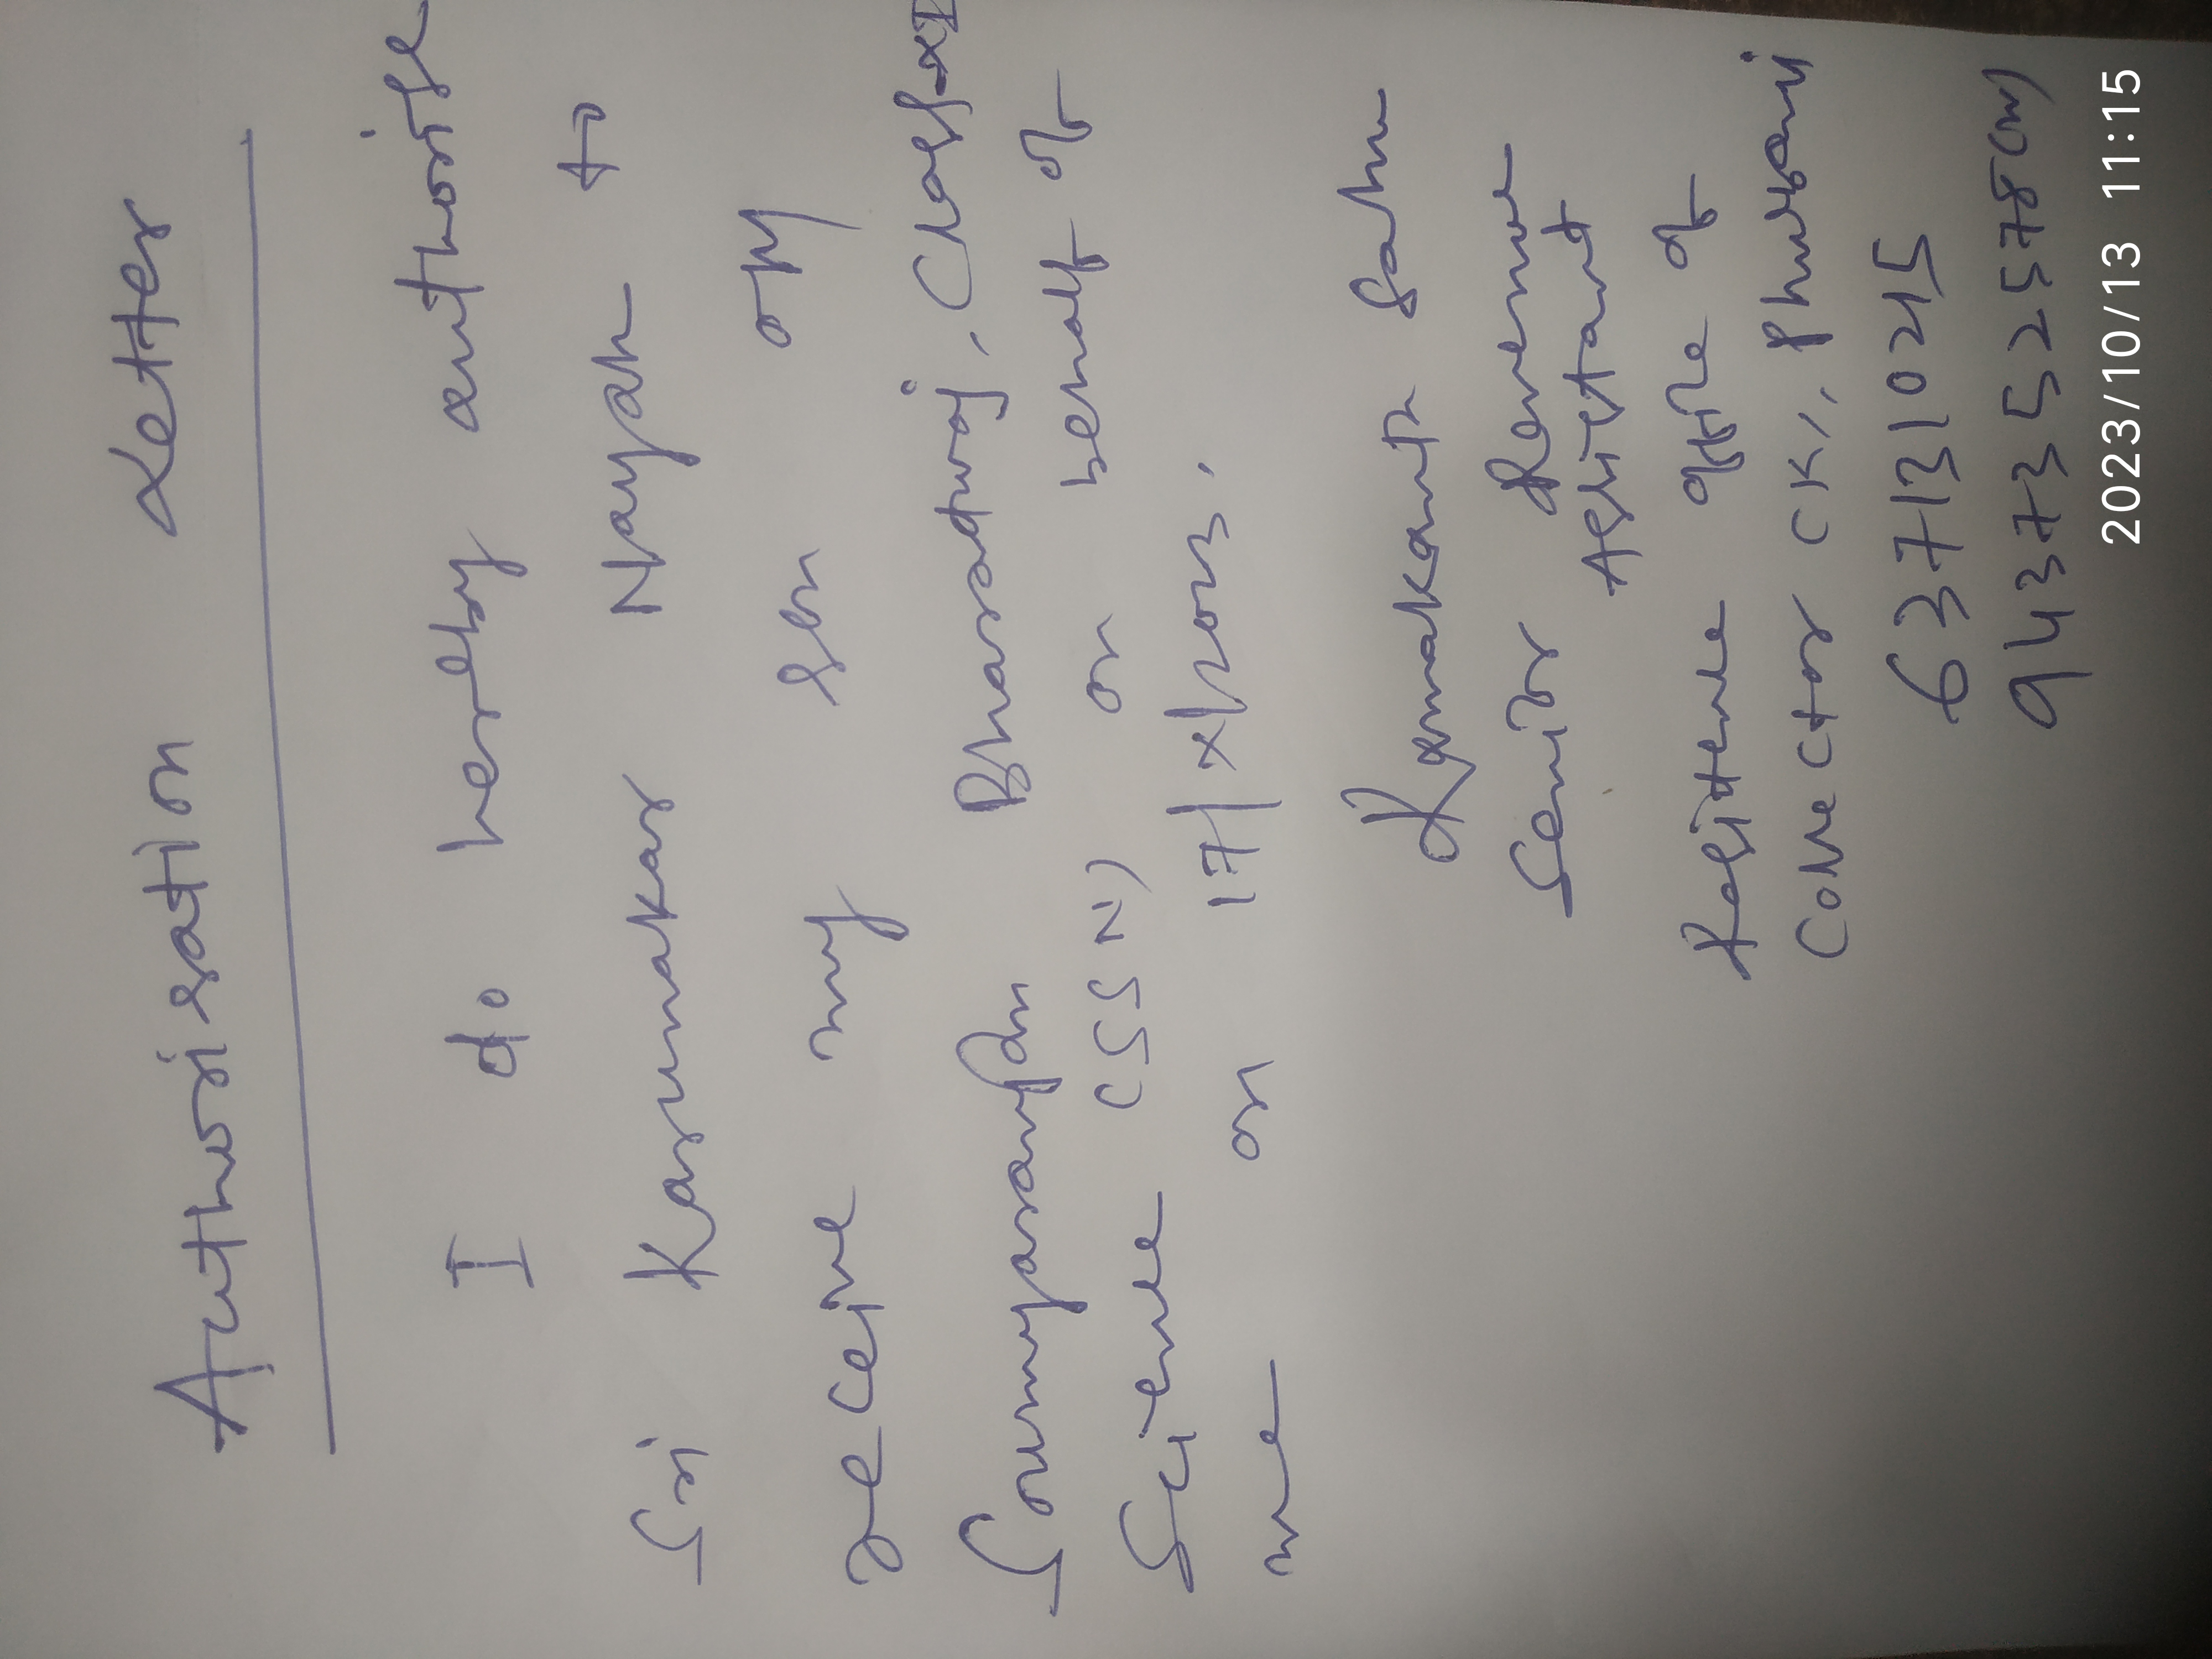 Authorisation Letter
I do hereby authorise
Sri Karunakar Nayak to
receive my son
Bharadwaj, Class-XI
Science (SSN) on behalf of
me on 17/X/2023.
Sahu
Senior Revenue
Assistant
office of
Collector (K), Phulbani
6371310245
9437352578(M)
2023/10/13 11:15